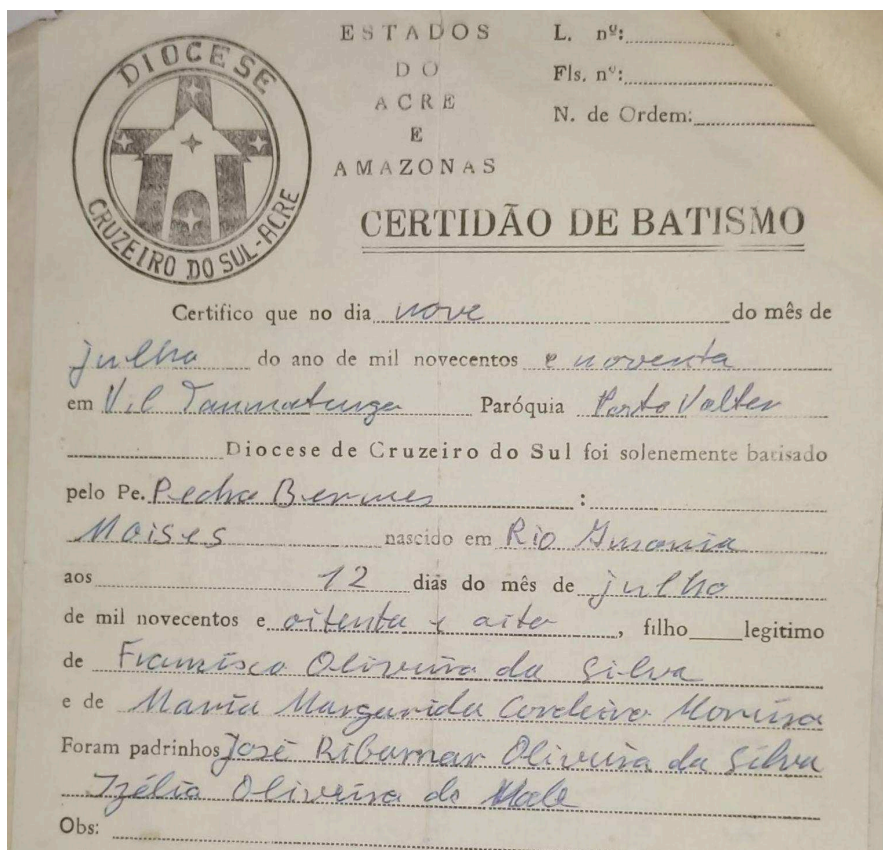 DIOCESE
CRUZEIRO DO SUL-ACRE
ESTADOS
DO
ACRE
E
AMAZONAS
L. nº:
Fls. nº:
N. de Ordem:
CERTIDÃO DE BATISMO
Certifico que no dia nove do mês de
julho do ano de mil novecentos e noventa
em Vil Taumaturgo Paróquia Porto Valter
Diocese de Cruzeiro do Sul foi solenemente batisado
pelo Pe. Pedro :
Moises nascido em Rio
aos 12 dias do mês de julho
de mil novecentos e oitenta e oito, filho legitimo
de Francisco Oliveira da Silva
e de Maria Margarida Cordeiro Moreira
Foram padrinhos José Ribamar Oliveira da Silva
Izélia Oliveira do
Obs: